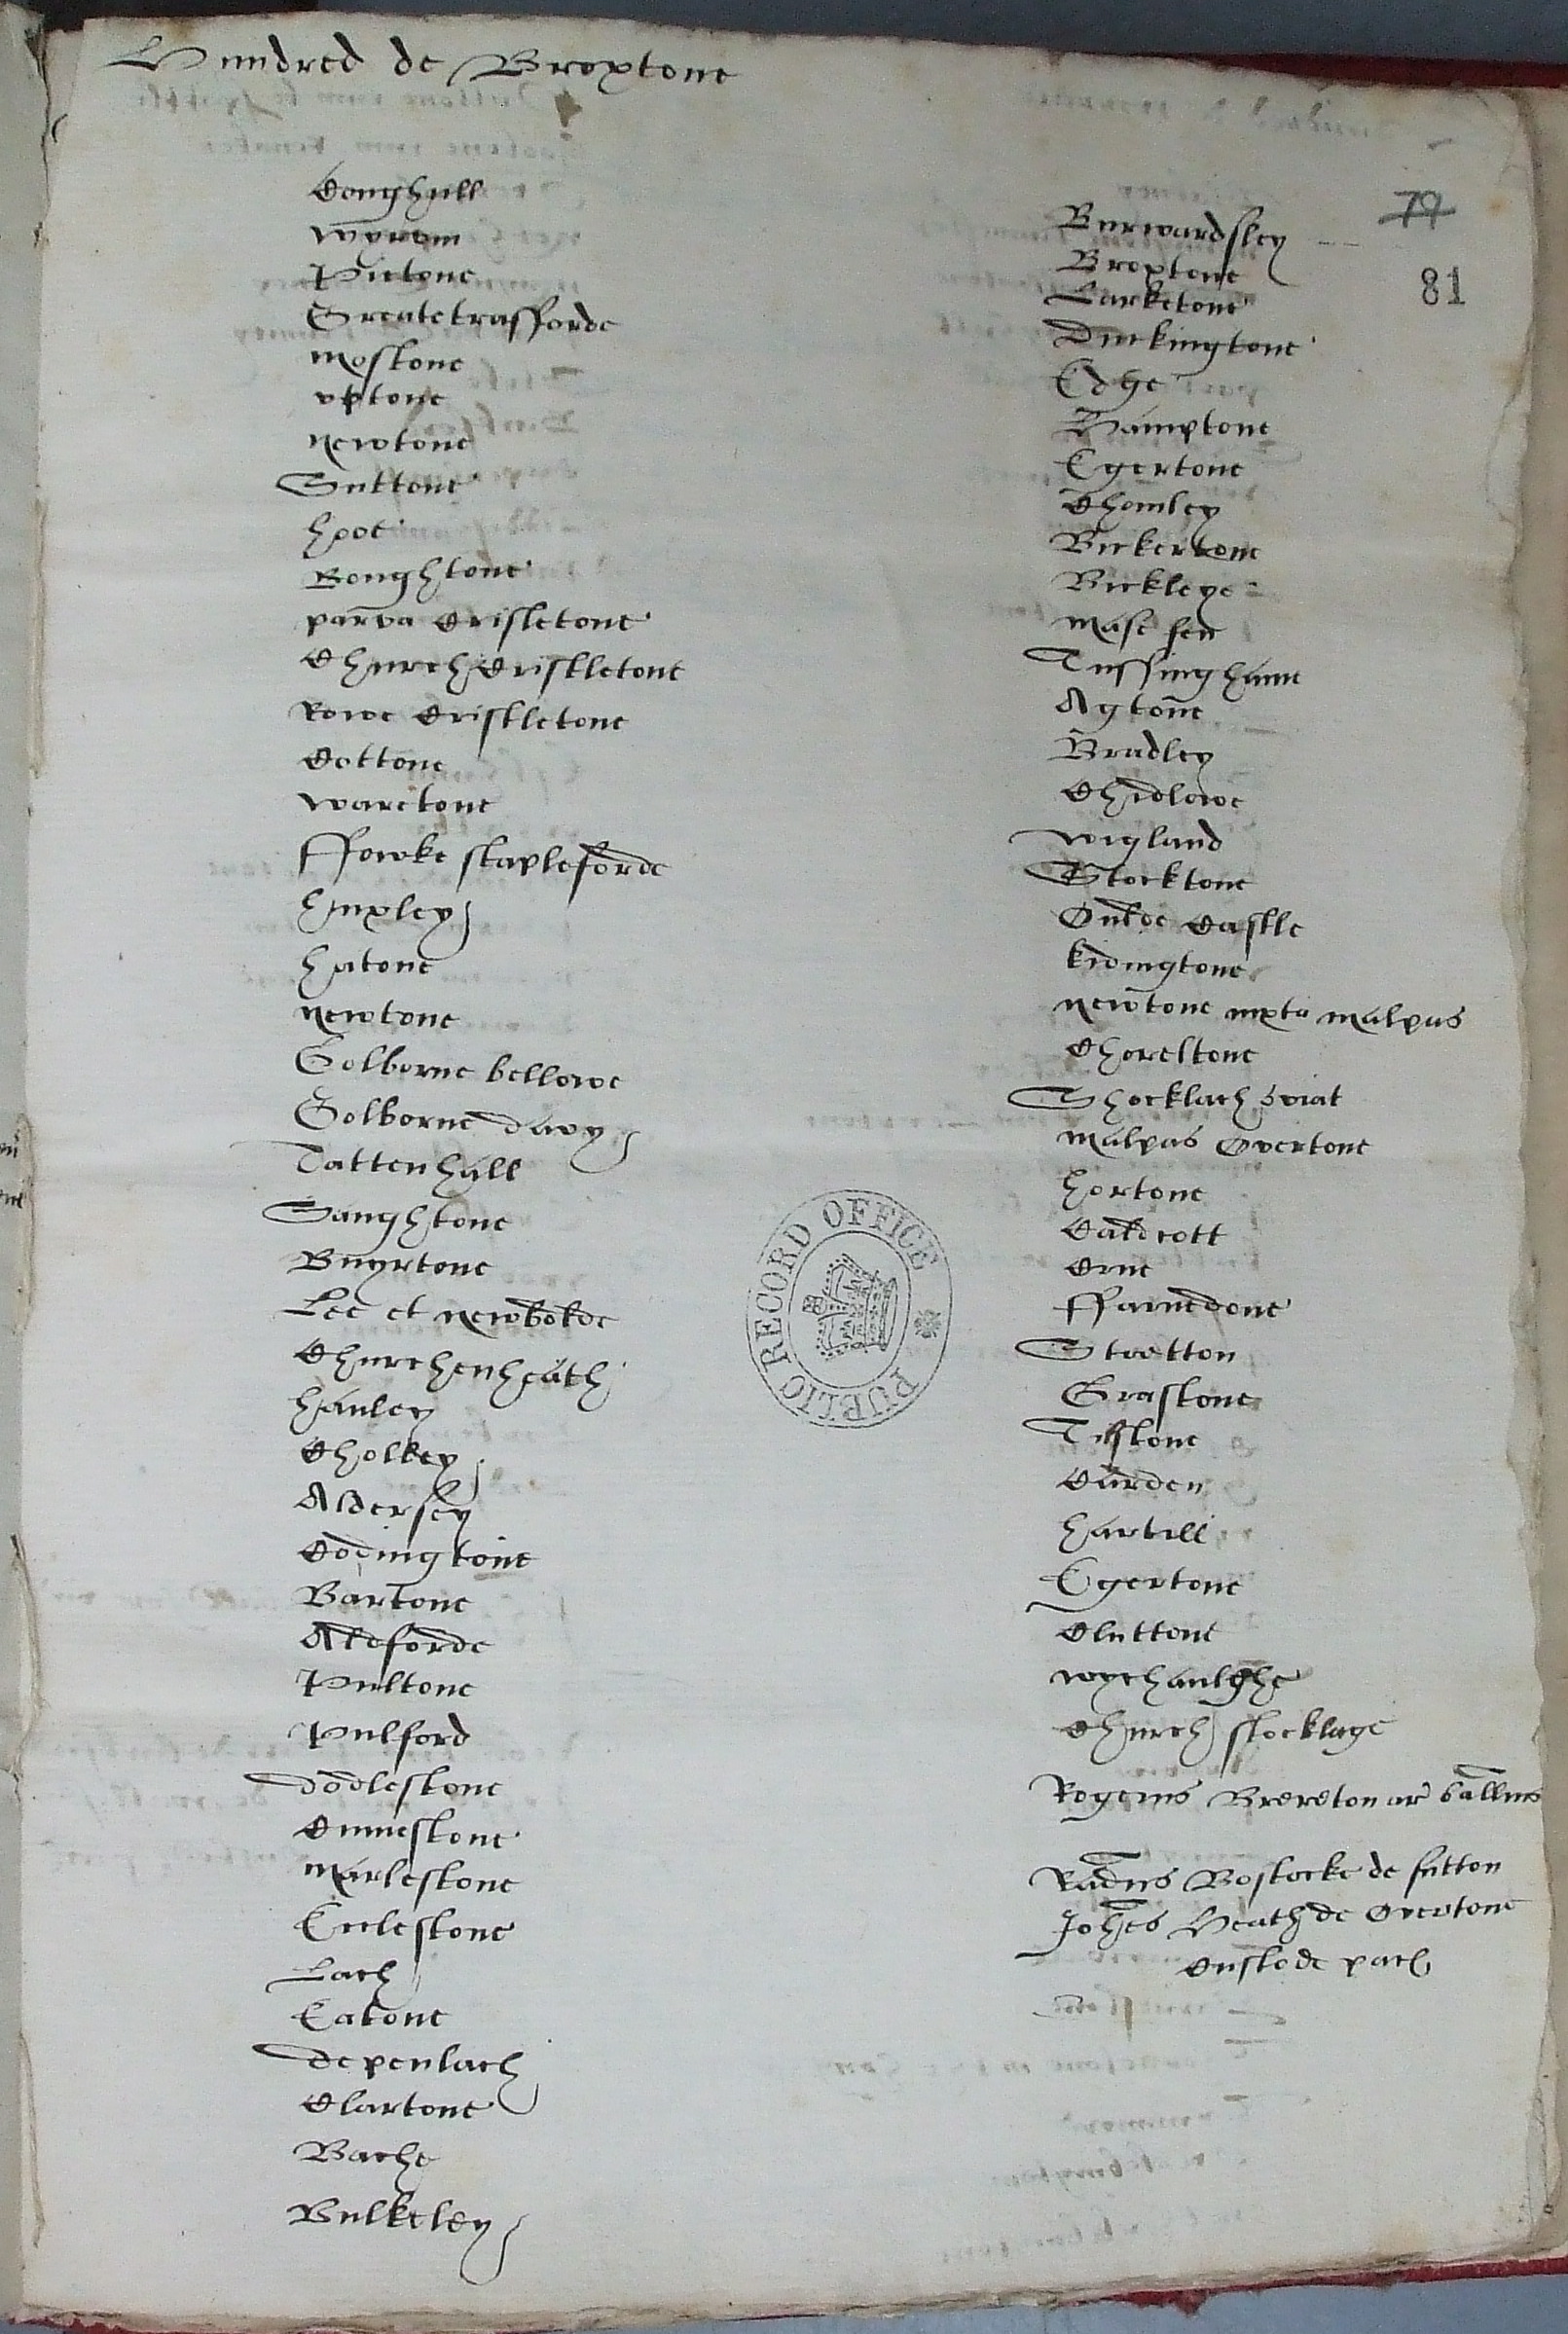 Hundred de Broxtone
Coughull
Wyrvin
Pictone
Greatetrafforde
Mostone
Uptone
Newtone
Guttone
hooe
Boughtone
parva Cristletone
Church Cristletone
Rowe Cristletone
Cottone
Waretone
ffowke stapleforde
huxley
hatone
Newtone
Golborne bellowe
Golborne davy
Tattenhall
Saughtone
Buyrtone
Lee et Newbolde
Churchenheath
hanley
Cholley
Aldersey
Codingtone
Bartone
Aldforde
Pultone
Pulford
dodlestone
Marlestone
Ecclestone
Lach
Eatone
depenbach
Clartone
Bache
Bulkeley
79
81
Burwardsley
Broxtone
Larketone
Duckingtone
Edge
Hamptone
Egertone
Chomley
Bickertone
Bickleye
Mase fen
Tussinghame
Agtone
Bradley
Chidlowe
Wigland
Stocktone
Oulde Castle
Kidingtone
Newtone iuxta Malpas
Choreltone
Shocklach oviat
Malpas Overtone
hortone
Caldcott
Crue
ffarnedone
Stretton
Grastone
Tilstone
Carden
hartill
Egertone
Cluttone
Wychaulghe
Church stocklage
Rogerus Brereton ar ballius
Radus Bostocke de sutton
Johes Heath de Overtone
Custode pacis
PUBLIC RECORD OFFICE